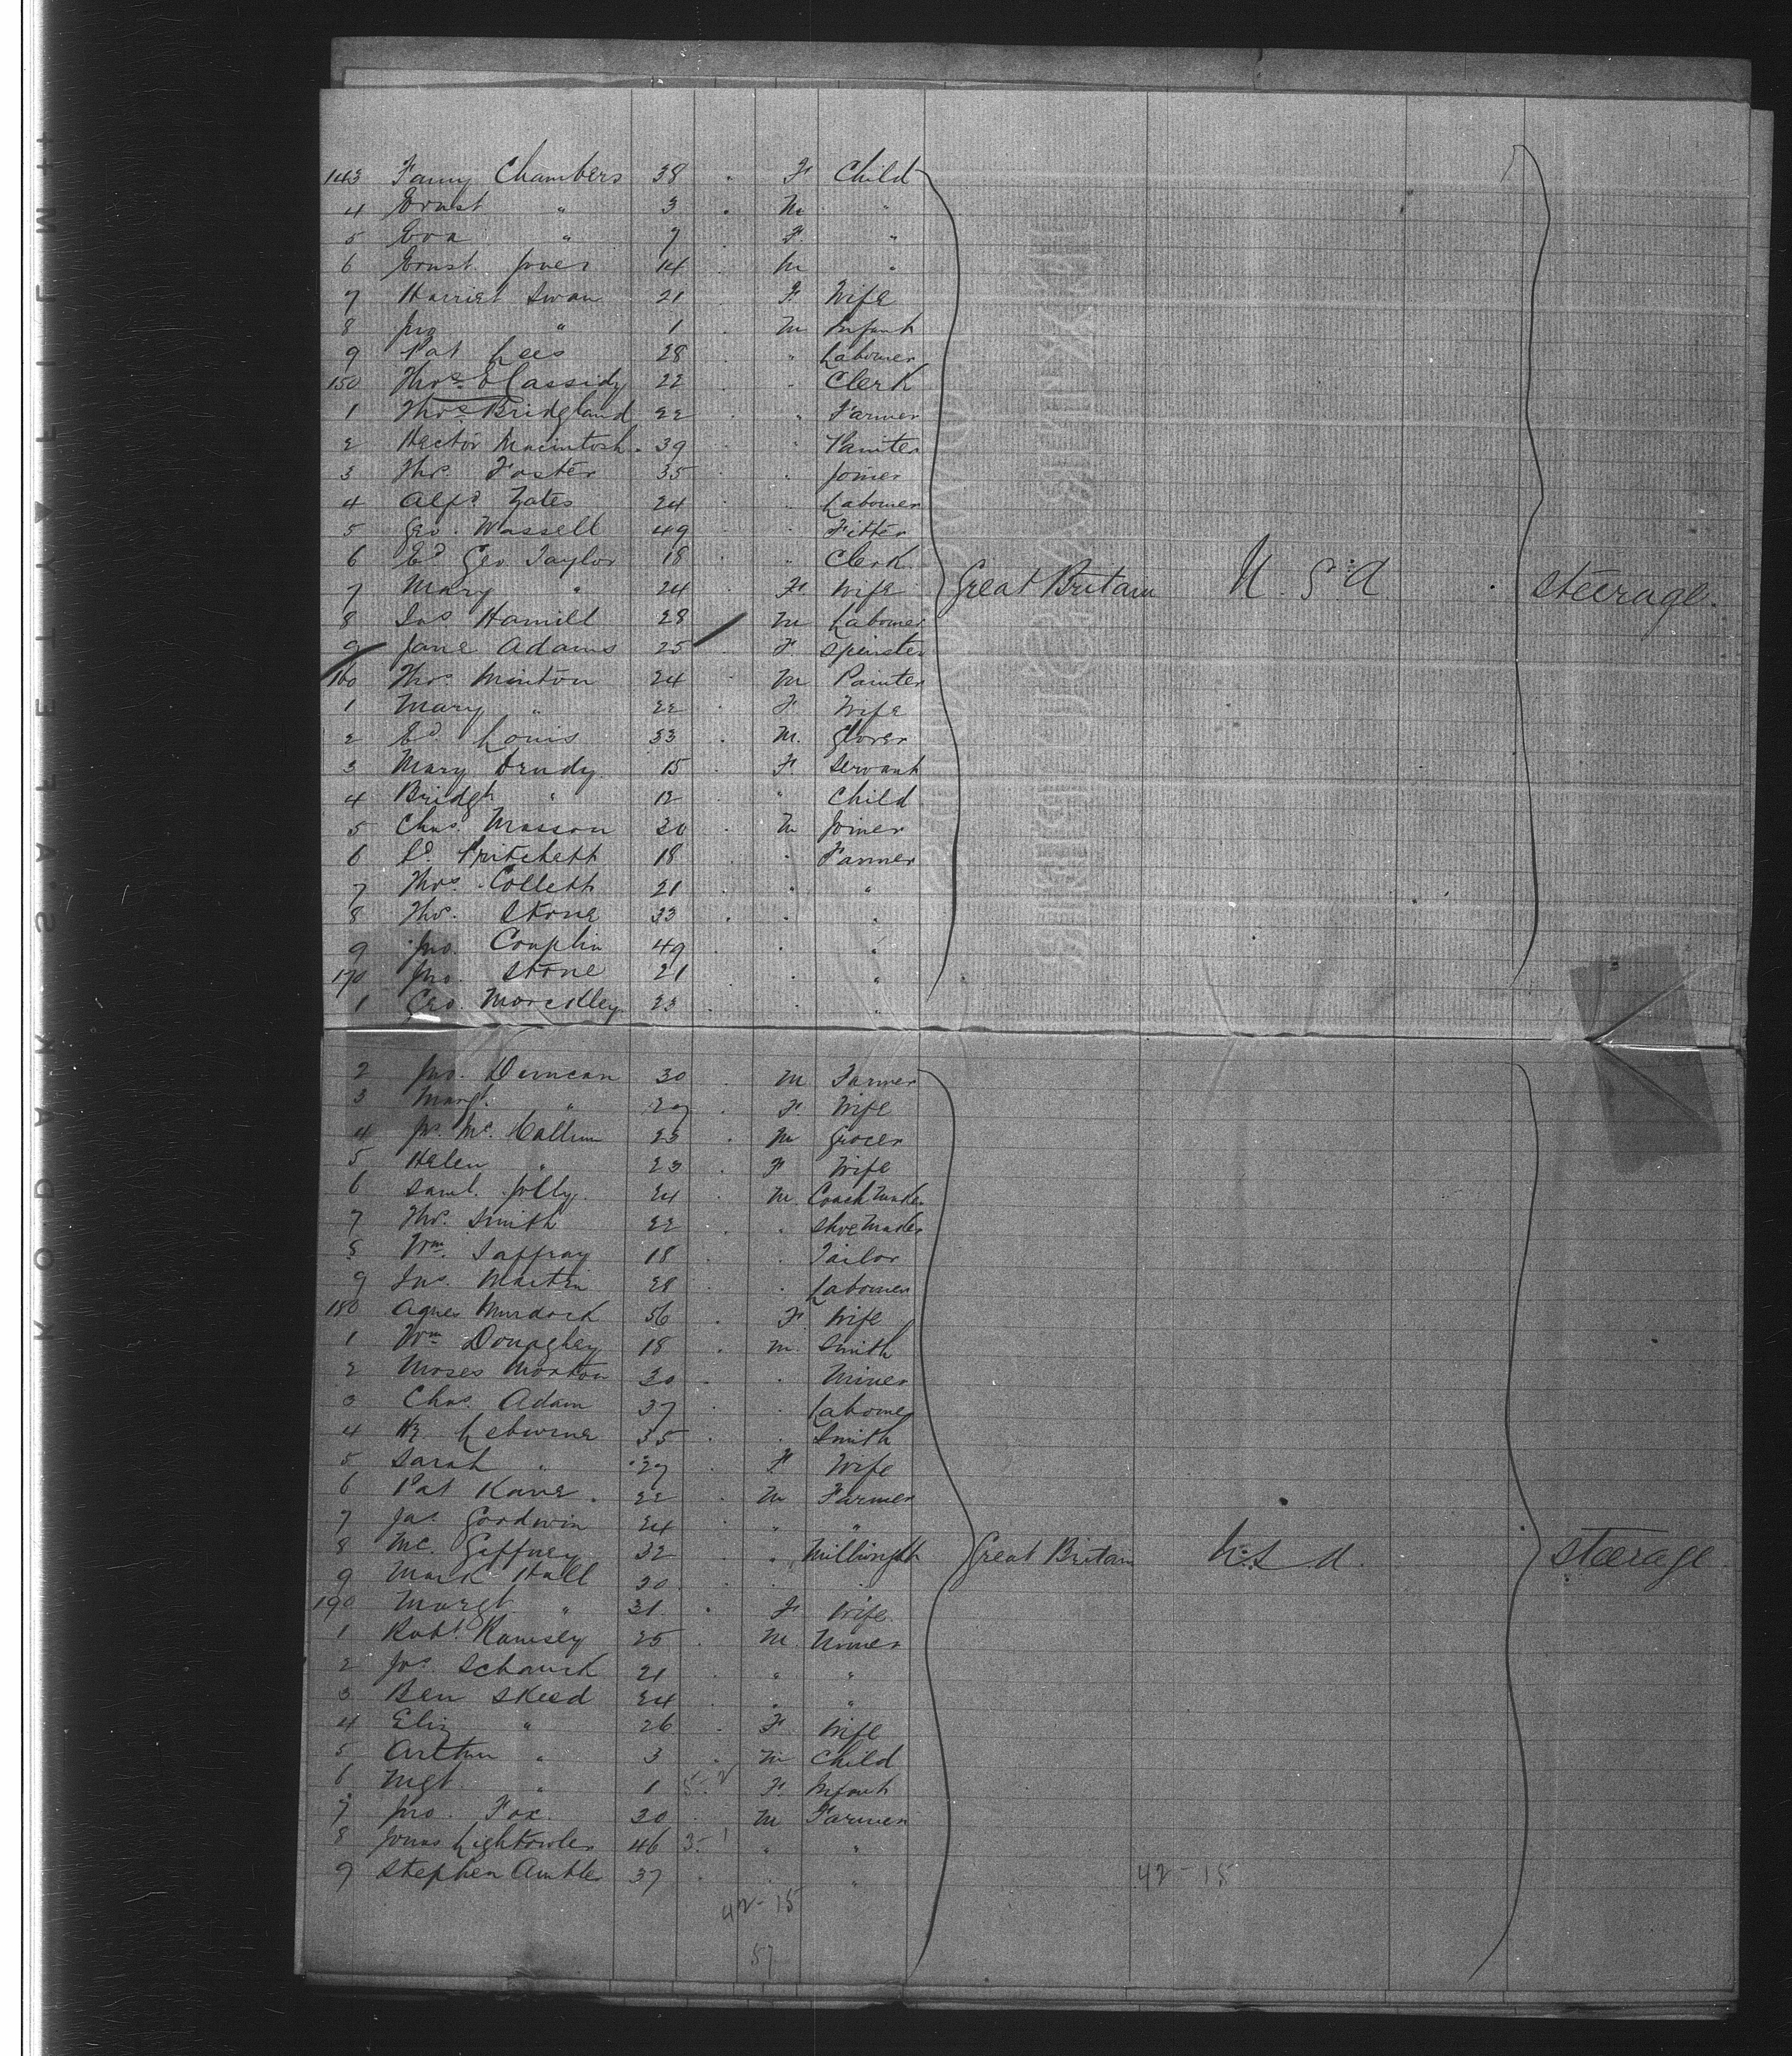 143 Fanny Chambers 38 F Child
4 Ernst " 3 M "
5 Eva " 7 F "
6 Ernst Jones 14 M "
7 Harriet Swan 21 F Wife
8 Jno " 1 M Infant
9 Pat Lees 28 " Labourer
150 Thos Cassidy 22 " Clerk
1 Thos Bridgland 22 " Farmer
2 Hector Macintosh 39 " Painter
3 Thos. Foster 35 " Joiner
4 Alfd Yates 24 " Labourer
5 Geo. Wassell 49 " Fitter
6 Ed Geo Taylor 18 " Clerk
7 Mary " 24 F Wife Great Britain U.S.A. Steerage.
8 Jas Hamill 28 M Labourer
9 Jane Adams 25 F Spinster
160 Thos. Minton 24 M Painter
1 Mary " 22 F Wife
2 Ed. Louis 33 M. Glover
3 Mary Drudy 15 F Servant
4 Bridgt " 12 " Child
5 Chas. Masson 30 M Joiner
6 Pritchett 18 " Farmer
7 Thos. Collett 21 " "
8 Thos. Stone 33 " "
9 Jno. 49 " "
170 Jno. Stone 21 " "
1 Geo. 23 "
2 Jno. Duncan 30 M Farmer
3 Margt. " 27 F Wife
4 Mc. Callum 23 M Grocer
5 Helen " 23 F Wife
6 Saml. Jolly. 24 M. Coach Maker
7 Thos. Smith 22 " Shoe Maker
8 Wm. Jaffray 18 " Tailor
9 Jas. Martin 28 " Labourer
180 Agnes Murdock 56 F Wife
1 Wm Donaghey 18 M. Smith
2 Moses Morton 30 " Miner
3 Chas. Adam 37 " Labourer
4 35 " Smith
5 Sarah " 27 F Wife
6 Pat Kane. 22 M Farmer
7 Jas. Goodwin 24 " "
8 Mc. Gaffney 32 " Great Britain U.S.A. Steerage
9 Mark Hall 30 " "
190 Margt " 31 F Wife
1 Robt. Ramsey 25 M. Miner
2 Jos. 21 " "
3 Ben Skeed 24 " "
4 Eliz " 26 F Wife
5 Arthur " 3 M Child
6 Mgt. " 1 F. Infant
7 Jno. Fox. 30 M Farmer
8 Jonas Lightowler 46 " "
9 Stephen Ambler 37 " "
42-15
42-15
57
KODAK·SAFETY